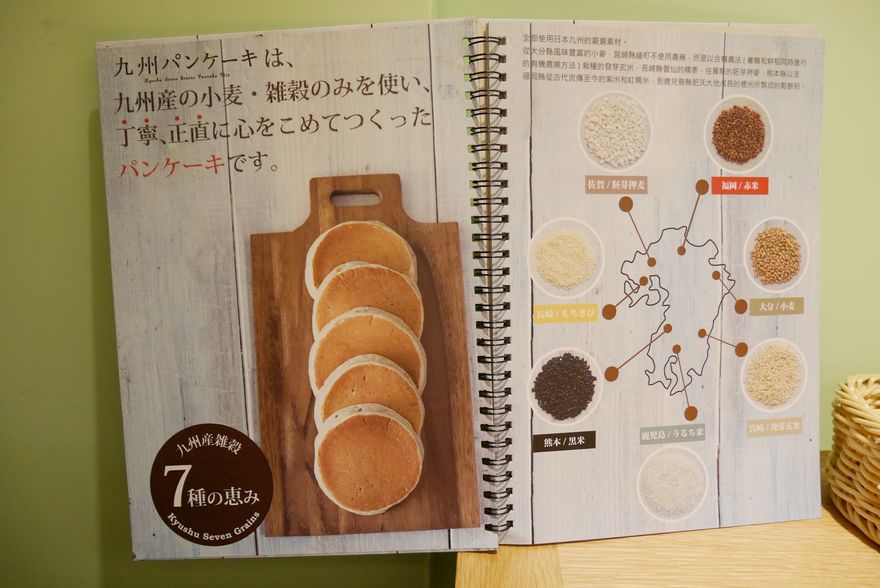 九州パンケーキは、
Kyushu Seven Grains Pancake Mix
九州産の小麦・雑穀のみを使い、
丁寧、正直に心をこめてつくった
パンケーキです。
九州産雑穀
7種の恵み
Kyushu Seven Grains
全部使用日本九州的嚴選素材。
從大分縣風味豐富的小麥，宮崎縣綾町不使用農藥，而是以合鴨農法（養鴨和耕稻同時進行
的有機農業方法）栽種的發芽玄米，長崎縣雲仙的糯黍，佐賀縣的胚芽押麥，熊本縣以及
福岡縣從古代流傳至今的紫米和紅糯米，到鹿兒島縣肥沃大地成長的梗米所製成的鬆餅粉。
佐賀 / 胚芽押麦
福岡 / 赤米
長崎 / もちきび
大分 / 小麦
熊本 / 黒米
鹿児島 / うるち米
宮崎 / 発芽玄米